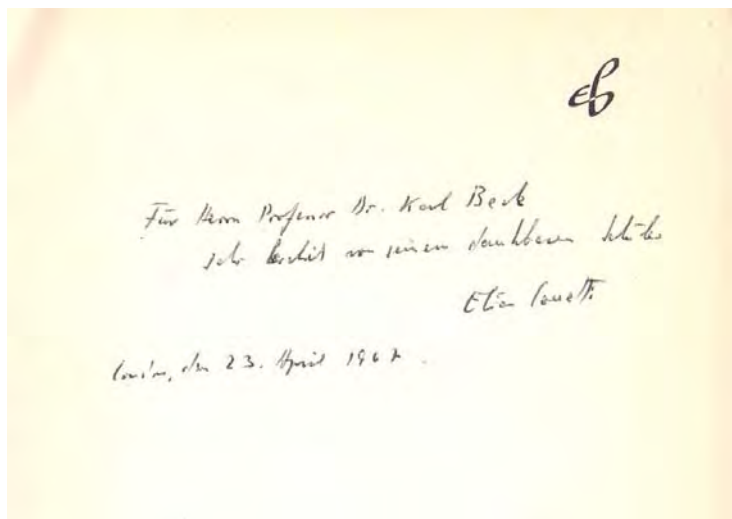 Für Herrn Professor Dr. Karl Beck
sehr herzlich von seinem dankbaren Schüler
Elias Canetti
London, den 23. April 1967.